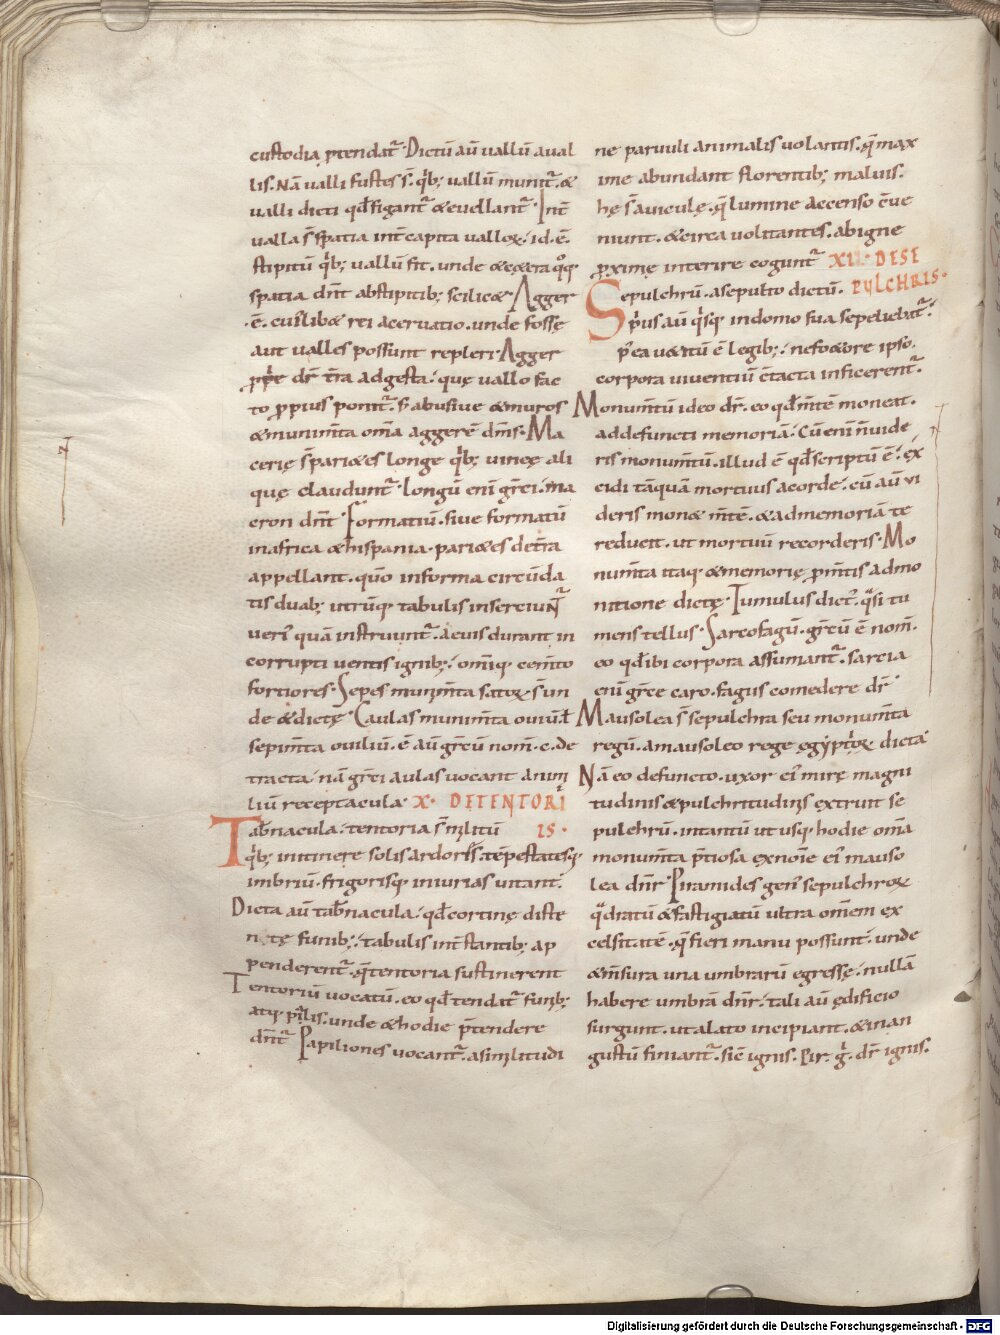 custodia p̱tendat᷑. Dictū aū vallū aual
lis. Nā valli fustes s̄. qb; vallū munit᷑. &
valli dicti qđ figant᷑ & euellant᷑. Int̄
valla s̄ spatia int̄ capita vallox. id. ē.
stipitū qb; vallū fit. unde & cetera qͦq
spatia dn̄t abstipitib; scilic& Agger
.ē. cuislib& rei aceruatio. unde fossę
aut valles possunt repleri. Agger
ꝓprie dr̄ tr̄a adgesta. quę vallo fac
to ꝓpius ponit᷑. s; abusiue & muros
& munimta om̄a aggerē dm̄s. Ma
cerię s̄ pari&es longe qb; uineę ali
quę claudunt᷑. longū eni gr̄ci. ma
cron dn̄t Formatiū. siue formatū
inafrica & hispania. pari&es detr̄a
appellant. qūo informa circūda
tis duab; utrūq. tabulis inserciunt᷑
veri᷒ quā instruunt᷑. aeuis durant in
corrupti uentis ignib; om̄iq cemto
fortiores. Sepes munimta satox s̄ un
de & dictę. Caulas munimta ouiū. ł
sepimta ouiliū. ē aū gr̄cū nom̄. c. de
tracta. nā gr̄ci aulas uocant anim
liū receptacula. X. DETENTORI
Tab̄nacula. tentoria s̄ militū IS.
qb; initinere solis ardoris. tēpestatesq
imbriū. frigorisq iniurias uitant.
Dicta aū tab̄nacula. qđ cortinę diste
ntę funib; tabulis int̄stantib; ap
penderent᷑. q̄ tentoria sustinerent
Tentoriū uocatū. eo qđ tendat᷑ funib;
atq pālis. unde & hodie p̄tendere
dn̄t᷑ Papiliones uocant᷑. asimilitudi
ne paruuli animalis uolantis. q̄ max
ime abundant florentib; maluis.
hę s̄ auiculę. q̄ lumine accenso c̄ue
niunt. & circa uolitantes. abigne
ꝓxime interire cogunt᷑ XI. DESE
Sepulchrū. asepulto dictū. PULCHRIS.
Prius aū qisq indomo sua sepeliebat᷑.
p̄ea u&itū ē legib; nefo&ore ipso.
corpora uiuentiū c̄tacta inficerent᷑.
Monumtū ideo dr̄. eo qđ mtē moneat.
addefuncti memoriā. Cū eni n̄ uide
ris monumtū. illud ē qđ scriptū ē. ex
cidi tāquā mortuus acorde. cū aū vi
deris mon& mtē. & admemoriā te
reducit. ut mortuū recorderis. Mo
numta itaq & memorię ꝓ mtis admo
nitione dictę. Tumulus dict᷒. qsi tu
mens tellus. Sarcofagū. grēcū ē nom̄.
eo qđ ibi corpora assumant᷑. sarcia
eni gr̄ce caro. fagus comedere dr̄
Mausolea s̄ sepulchra seu monumta
regū. amausoleo rege egyptiox dicta
Nā eo defuncto. uxor ei᷒ mirę magni
tudinis & pulchritudinis extruit se
pulchrū. intantū ut usq hodie om̄a
monumta p̄tiosa exnoīe ei᷒ mauso
lea dn̄r Piramides gen᷒ sepulchrox
qdratū & fastigiatū ultra om̄em ex
celsitatē. q̄ fieri manu possunt. unde
& m̄sura una umbrarū egressę. nullā
habere umbrā dn̄r. tali aū ędificio
surgunt. ut alato incipiant. & inan
gustū finiant᷑. sic̄ ignis. Pir. g. dr̄ ignis.
Digitalisierung gefördert durch die Deutsche Forschungsgemeinschaft - DFG